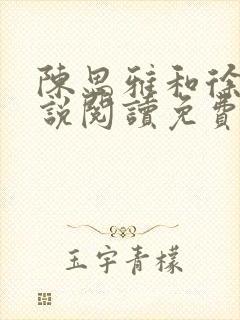 陳思雅和徐
說閱讀免費
玉宇青檬